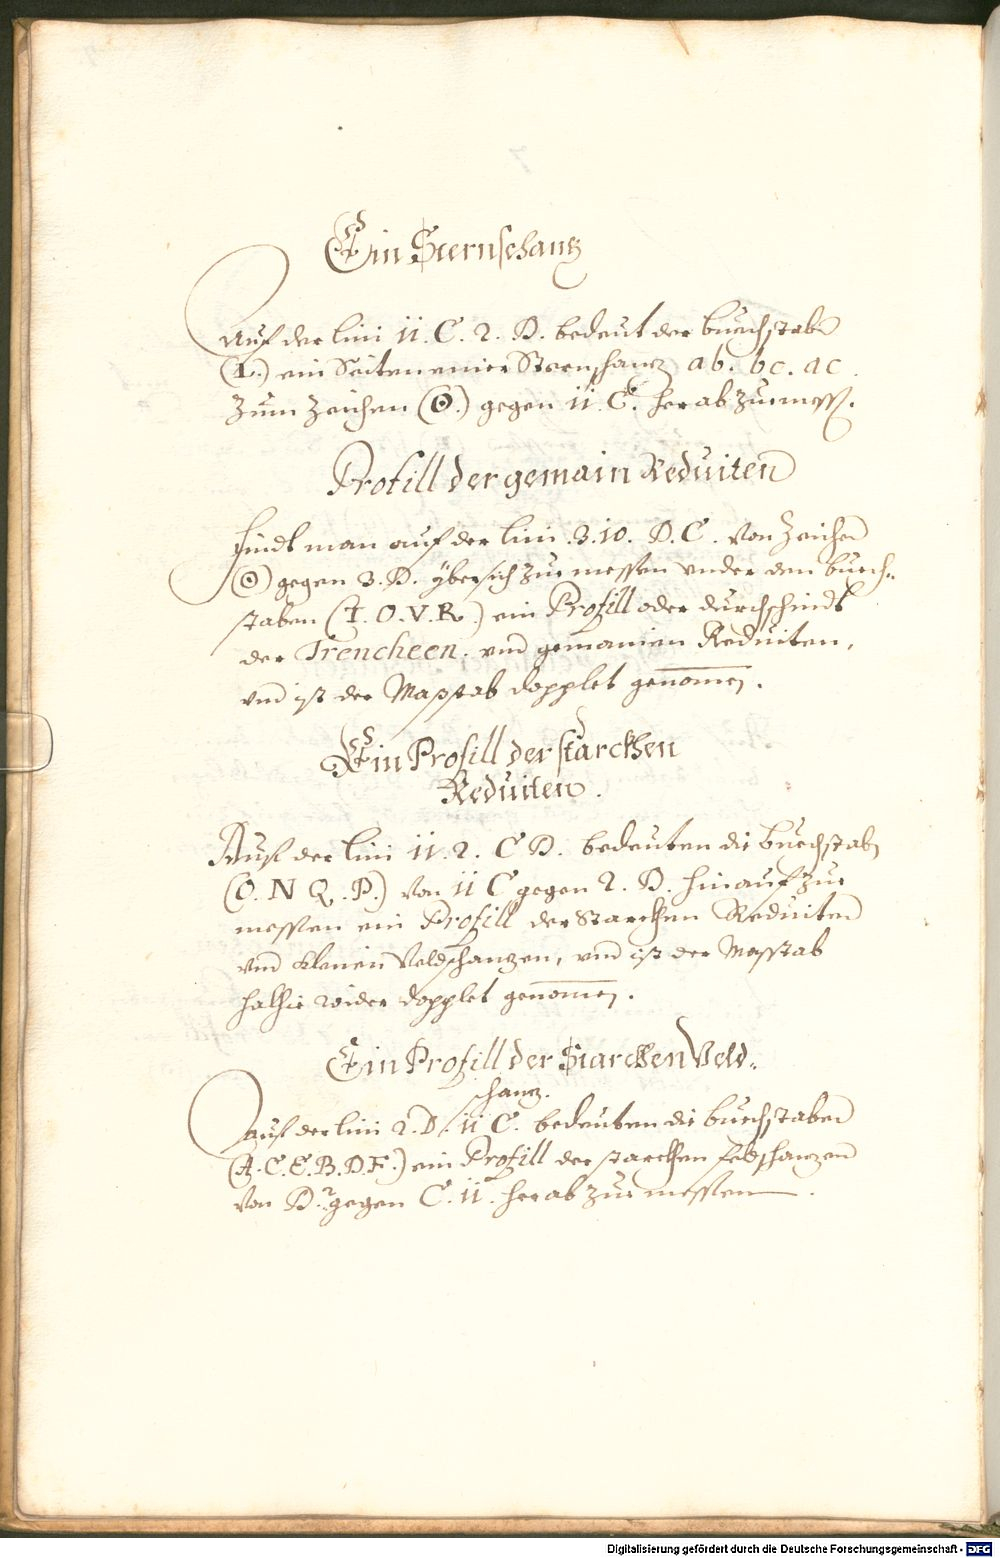 Ein Sternschantz
Auf der lini 11. C. 2. D. bedeut der buechstabe
(L.) ein Seiten einer Sternschantz ab. bc. ac.
Zum Zeichen (⊙.) gegen 11. C. herab zue mess.
Profill der gemain Reduiten
findt man auf der lini .3.10. D. C. von Zeichen
(⊙) gegen 3. D. ÿbersich zue messen vnder den buech-
staben (T. O. V. R.) ein Profill oder durchschnidt
der Trencheen. vnd gemainen Reduiten,
vnd ist der Masstab dopplet genomen.
Ein Profill der starckhen
Reduiten.
Auf der lini 11. 2. C D. bedeuten die buechstaben
(O. N Q. P.) von 11 C gegen 2. D. hinauf zue
messen ein Profill der Starckhen Reduiten
vnd klenen Veldschantzen, vnd ist der Masstab
halhie wider dopplet genomen.
Ein Profill der Starckhen Veld-
schantz.
Auf der lini 2. D. 11 C. bedeuten die buechstaben
(A. C. E. B. D. F.) ein Profill der starckhen feldschantzen
von D. 2. gegen C. 11. herab zue messen.
Digitalisierung gefördert durch die Deutsche Forschungsgemeinschaft - DFG